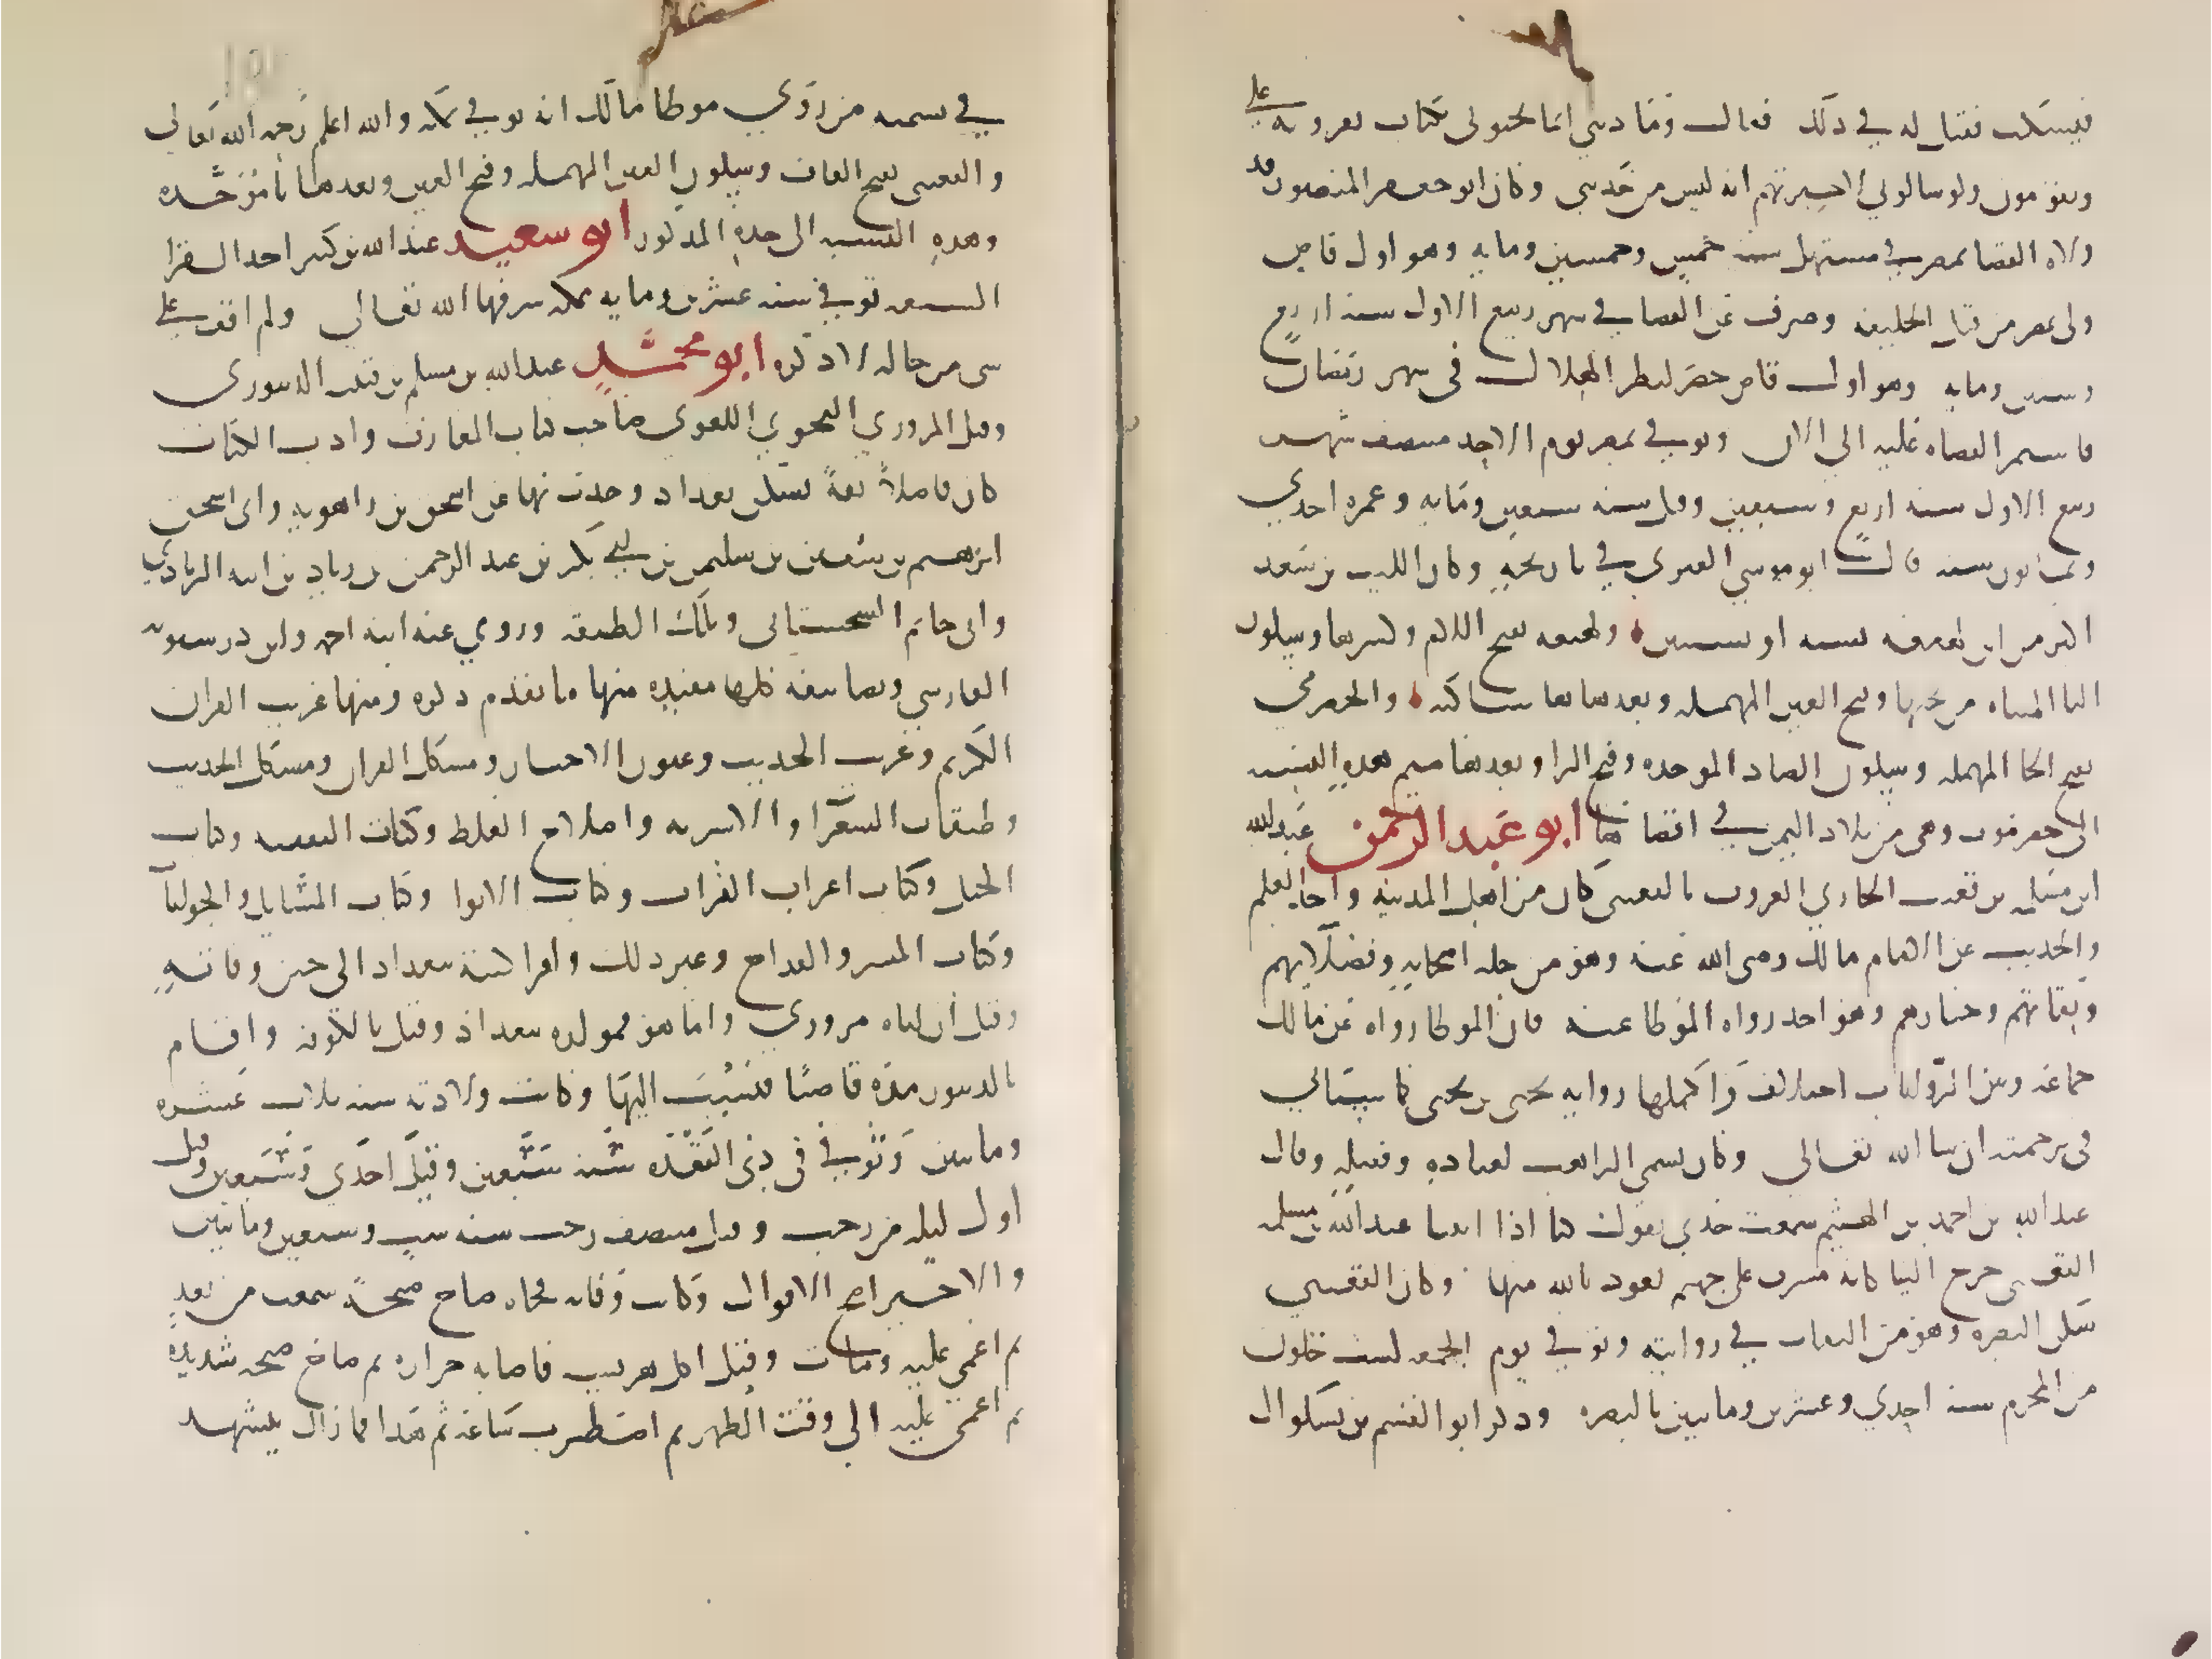 فيسكت فقيل له في ذلك فقال وما ذنبي انما يجيوني بكتاب يقرونه علي
ويقومون ولو سالوني لاخبرتهم انه ليس من حديثي وكان ابو جعفر المنصور قد
ولاه القضا بمصر في مستهل سنه خمس وخمسين ومايه وهو اول قاض
ولي بمصر من قبل الخليفه وصرف عن القضا في شهر ربيع الاول سنه اربع
وستين ومايه وهو اول قاض حضر لنظر الهلال في شهر رمضان
فاستمر القضاه عليه الى الان وتوفي بمصر يوم الاحد منتصف شهر
ربيع الاول سنه اربع وسبعين وقيل سنه سبعين ومايه وعمره احدي
وثمانون سنه قال ابو موسي العنزي في تاريخه وكان الليث بن سعد
اكبر من ابن لهيعه بسنه او بسنتين ولهيعه بفتح اللام وكسر الها وسكون
اليا المثناه من تحتها وفتح العين المهمله وبعدها ها ساكنه والحضرمي
بفتح الحا المهمله وسكون الضاد الموحده وفتح الرا وبعدها ميم هذه النسبه
الى حضرموت وهي من بلاد اليمن في اقصاها ابو عبد الرحمن عبد الله
ابن مسلمه بن قعنب الحارثي المعروف بالقعنبي كان من اهل المدينه واخذ العلم
والحديث عن الامام مالك رضي الله عنه وهو من جله اصحابه وفضلايهم
وثقاتهم وخيارهم وهو احد رواه الموطا عنه فان الموطا رواه عن مالك
جماعه وبين الروايات اختلاف واكملها روايه يحيى بن يحيى كما سياتي
في ترجمته ان شا الله تعالى وكان يسمى الراهب لعبادته وفضله وقال
عبد الله بن احمد بن الهيثم سمعت جدي يقول كنا اذا اتينا عبد الله بن مسلمه
القعنبي خرج الينا كانه مشرف على جهنم نعوذ بالله منها وكان القعنبي
سكن البصره وهو من الثقات في روايته وتوفي يوم الجمعه لست خلون
من المحرم سنه احدي وعشرين ومايتين بالبصره وذكر ابو القسم بن بشكوال
في تسميه من روي موطا مالك انه توفي بمكه والله اعلم رحمه الله تعالى
والقعنبي بفتح القاف وسكون العين المهمله وفتح العين وبعدها با موحده
وهذه النسبه الى جده المذكور ابو سعيد عبد الله بن كثير احد القرا
السبعه توفي سنه عشرين ومايه بمكه شرفها الله تعالى ولم اقف علي
شي من حاله لاذكره ابو محمد عبد الله بن مسلم بن قتيبه الدينوري
وقيل المروزي النحوي اللغوي صاحب كتاب المعارف وادب الكتاب
كان فاضلا ثقة سكن بغداد وحدث بها عن اسحق بن راهويه وابي اسحق
ابرهيم بن سفين بن سليمن بن ابي بكر بن عبد الرحمن بن زياد بن ابيه الزيادي
وابي حاتم السجستاني وتلك الطبقه وروي عنه ابنه احمد وابن درستويه
الفارسي وتصانيفه كلها مفيده منها ما تقدم ذكره ومنها غريب القران
الكريم وغريب الحديث وعيون الاخبار ومشكل القران ومشكل الحديث
وطبقات الشعرا والاشربه واصلاح الغلط وكتاب التفقيه وكتاب
الخيل وكتاب اعراب القران وكتاب الانوا وكتاب المسايل والجوابات
وكتاب الميسر والقداح وغير ذلك واقرا كتبه ببغداد الى حين وفاته
وقيل ان اباه مروزي واما هو فمولده ببغداد وقيل بالكوفه واقام
بالدينور مده قاضيا فنسب اليها وكانت ولادته سنه ثلاث عشره
ومايتين وتوفي في ذي القعده سنه سبعين وقيل احدي وسبعين وقيل
اول ليله من رجب وقيل منتصف رجب سنه ست وسبعين ومايتين
والاخير اصح الاقوال وكانت وفاته فجاه صاح صيحة سمعت من بعد
ثم اغمي عليه ومات وقيل اكل هريسه فاصابه حراره ثم صاح صيحه شديده
ثم اغمي عليه الى وقت الظهر ثم اضطرب ساعه ثم هدا فما زال يتشهد